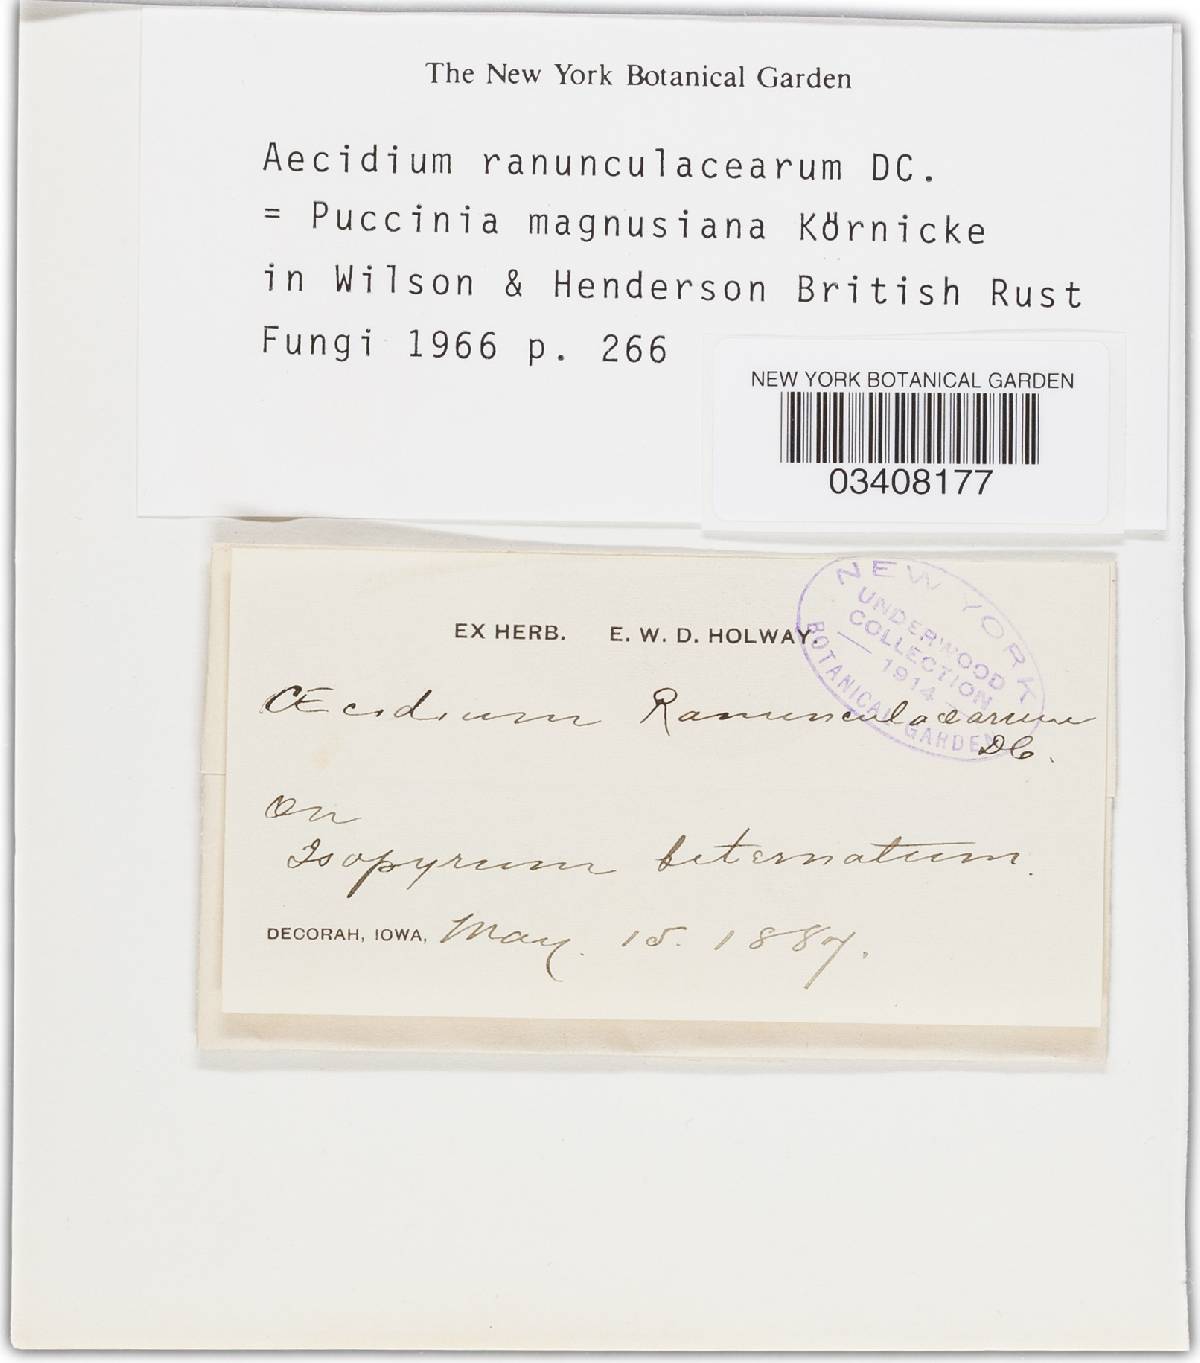 The New York Botanical Garden
Aecidium ranunculacearum DC.
= Puccinia magnusiana Körnicke
in Wilson & Henderson British Rust
Fungi 1966 p. 266
NEW YORK BOTANICAL GARDEN
03408177
NEW YORK
UNDERWOOD
COLLECTION
— 1914 —
BOTANICAL GARDEN
EX HERB. E. W. D. HOLWAY.
Œcidium Ranunculacearum
DC.
On
Isopyrum biternatum.
DECORAH, IOWA, May. 15. 1887.